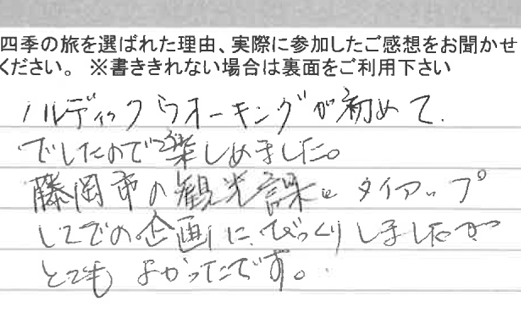 四季の旅を選ばれた理由、実際に参加したご感想をお聞かせ
ください。 ※書ききれない場合は裏面をご利用下さい
ノルディックウオーキングが初めて
でしたので楽しめました。
藤岡市の観光課とタイアップ
しての企画にびっくりしましたが
とてもよかったです。